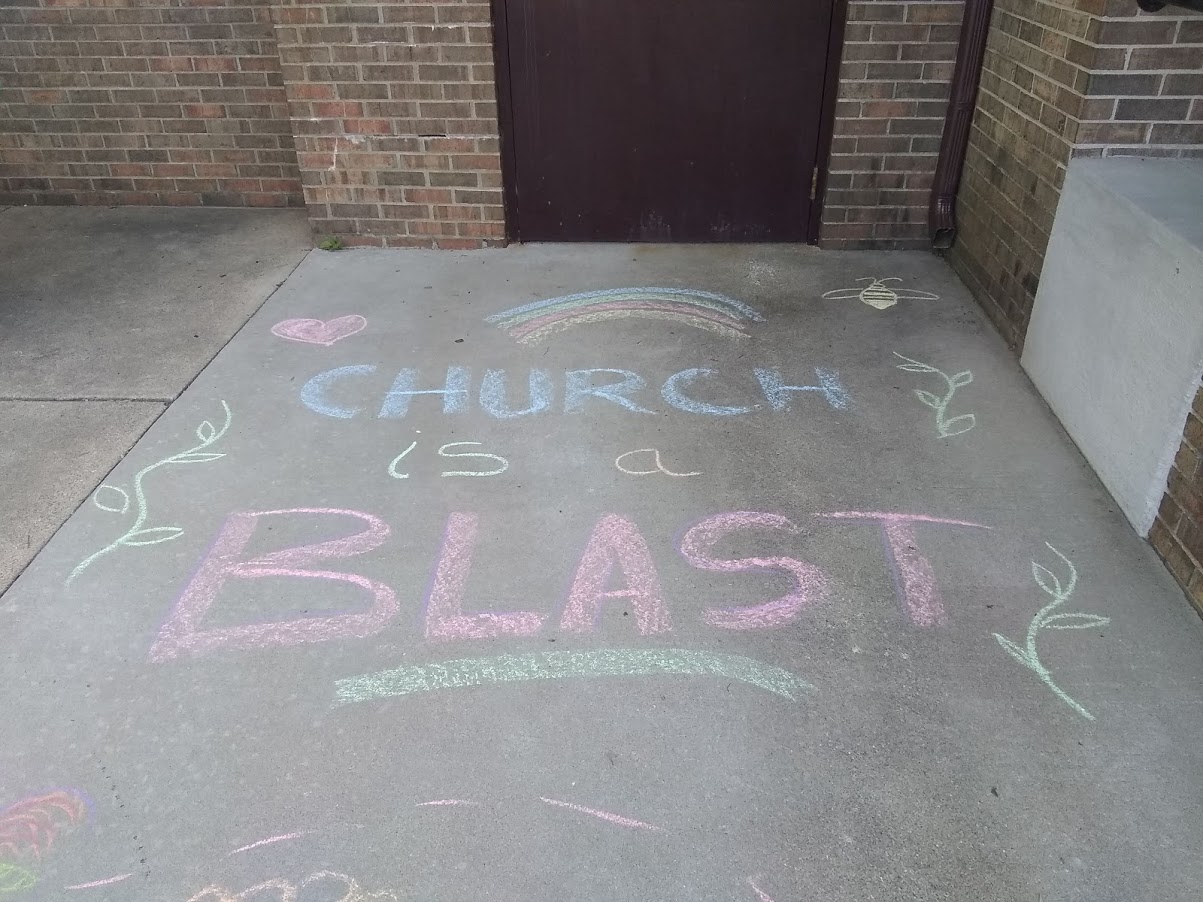 CHURCH
is a
BLAST